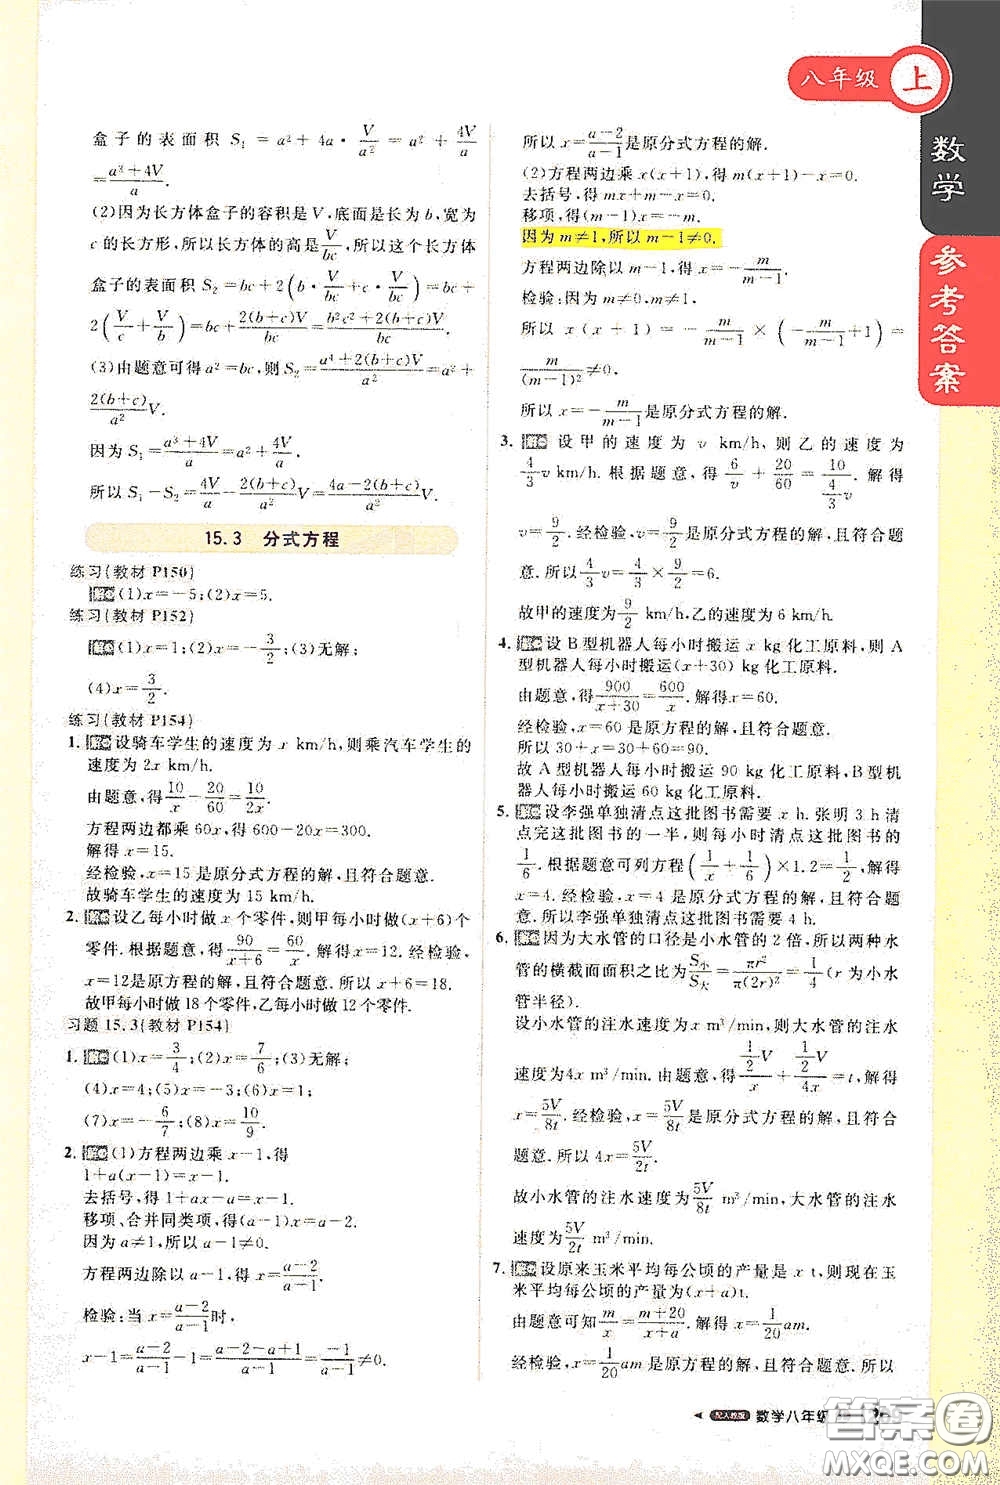 八年级 上
数学
参考答案
盒子的表面积 S₁ = a² + 4a · V/a² = a² + 4V/a =
(a³+4V)/a.
(2)因为长方体盒子的容积是 V,底面是长为 b,宽为
c 的长方形,所以长方体的高是 V/bc,所以这个长方体
盒子的表面积 S₂ = bc + 2(b · V/bc + c · V/bc) = bc +
2(V/c + V/b) = bc + 2(b+c)V/bc = (b²c²+2(b+c)V)/bc.
(3)由题意可得 a² = bc,则 S₂ = (a⁴+2(b+c)V)/a² = a² +
2(b+c)/a² V.
因为 S₁ = (a³+4V)/a = a² + 4V/a,
所以 S₁ − S₂ = 4V/a − 2(b+c)V/a² = (4aV−2(b+c)V)/a².
15.3 分式方程
练习(教材 P150)
解:(1)x=−5;(2)x=5.
练习(教材 P152)
解:(1)x=1;(2)x=−3/2;(3)无解;
(4)x=3/2.
练习(教材 P154)
1. 解:设骑车学生的速度为 x km/h,则乘汽车学生的
速度为 2x km/h.
由题意,得 10/x − 20/60 = 10/2x.
方程两边都乘 60x,得 600−20x=300.
解得 x=15.
经检验,x=15 是原方程的解,且符合题意.
故骑车学生的速度为 15 km/h.
2. 解:设乙每小时做 x 个零件,则甲每小时做(x+6)个
零件.根据题意,得 90/(x+6) = 60/x. 解得 x=12. 经检验,
x=12是原方程的解,且符合题意.所以 x+6=18.
故甲每小时做 18 个零件,乙每小时做 12 个零件.
习题 15.3(教材 P154)
1. 解:(1)x=3/4;(2)x=7/6;(3)无解;
(4)x=4;(5)x=−3;(6)x=1;
(7)x=−6/7;(8)x=10/9.
2. 解:(1)方程两边乘 x−1,得
1+a(x−1)=x−1.
去括号,得 1+ax−a=x−1.
移项、合并同类项,得(a−1)x=a−2.
因为 a≠1,所以 a−1≠0.
方程两边除以 a−1,得 x=(a−2)/(a−1).
检验:当 x=(a−2)/(a−1)时,
x−1=(a−2)/(a−1)−1=(a−2−a+1)/(a−1)=−1/(a−1)≠0.
所以 x=(a−2)/(a−1)是原分式方程的解.
(2)方程两边乘 x(x+1),得 m(x+1)−x=0.
去括号,得 mx+m−x=0.
移项,得(m−1)x=−m.
因为 m≠1,所以 m−1≠0.
方程两边除以 m−1,得 x=−m/(m−1).
检验:因为 m≠0,m−1≠0,
所以 x(x+1) = −m/(m−1) × (−m/(m−1)+1) =
m/(m−1)²≠0.
所以 x=−m/(m−1)是原分式方程的解.
3. 解:设甲的速度为 v km/h,则乙的速度为
4/3 v km/h. 根据题意,得 6/v + 20/60 = 10/(4/3 v). 解得
v=9/2. 经检验,v=9/2是原分式方程的解,且符合题
意.所以 4/3 v=4/3×9/2=6.
故甲的速度为 9/2 km/h,乙的速度为6 km/h.
4. 解:设 B 型机器人每小时搬运 x kg 化工原料,则 A
型机器人每小时搬运(x+30) kg化工原料.
由题意,得 900/(x+30)=600/x. 解得 x=60.
经检验,x=60 是原方程的解,且符合题意.
所以 30+x=30+60=90.
故 A 型机器人每小时搬运 90 kg 化工原料,B 型机
器人每小时搬运60 kg 化工原料.
5. 解:设李强单独清点这批图书需要 x h. 张明 3 h 清
点完这批图书的一半,则每小时清点这批图书的
1/6. 根据题意可列方程(1/x+1/6)×1.2=1/2,解得
x=4. 经检验,x=4 是原分式方程的解,且符合题
意.所以李强单独清点这批图书需要 4 h.
6. 解:因为大水管的口径是小水管的 2 倍,所以两种水
管的横截面面积之比为 S小/S大=πr²/π(2r)²=1/4(r 为小水
管半径).
设小水管的注水速度为 x m³/min,则大水管的注水
速度为4x m³/min. 由题意,得 (1/2 V)/x+(1/2 V)/4x=t,解得
x=5V/8t. 经检验,x=5V/8t是原分式方程的解,且符合
题意.所以 4x=5V/2t.
故小水管的注水速度为 5V/8t m³/min,大水管的注水
速度为 5V/2t m³/min.
7. 解:设原来玉米平均每公顷的产量是 x t,则现在玉
米平均每公顷的产量为(x+a)t.
由题意可知 m/x=(m+20)/(x+a). 解得 x=1/20 am.
经检验,x=1/20 am是原方程的解,且符合题意.所以
配人教版 数学八年级
答案圈
MXQE.COM